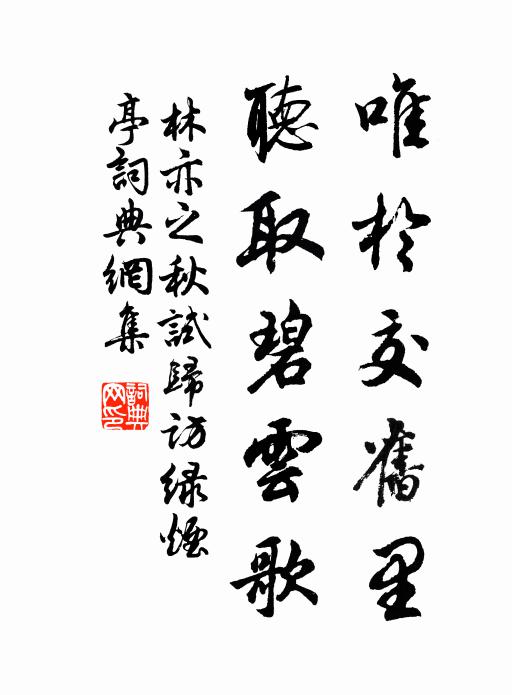 唯於交舊里
聽取碧雲歌
林亦之秋試歸訪綠煙
亭詞典網集
詞典
网印